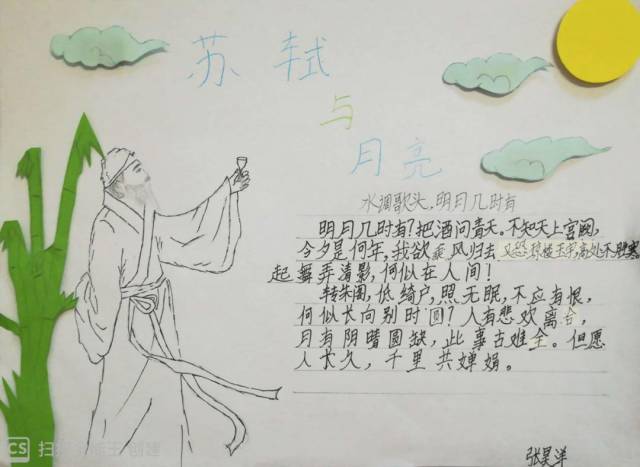 苏轼
与
月亮
水调歌头·明月几时有
明月几时有?把酒问青天。不知天上宫阙,
今夕是何年,我欲乘风归去又恐琼楼玉宇,高处不胜寒
起舞弄清影,何似在人间!
转朱阁,低绮户,照无眠,不应有恨,
何似长向别时圆?人有悲欢离合,
月有阴晴圆缺,此事古难全。但愿
人长久,千里共婵娟。
张昊洋
CS 扫描全能王 创建